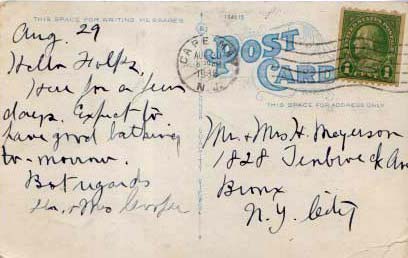 THIS SPACE FOR WRITING MESSAGES
Aug. 29
Hello Folks,
Here for a few
days. Expect to
have good bathing
to-morrow.
Best regards
Mr. & Mrs Cooper
POST
CARD
THIS SPACE FOR ADDRESS ONLY
CAPE MAY
AUG
N.J.
1
1
Mr. & Mrs H. Meyerson
1828 Tenbroeck Av
Bronx
N.Y. City